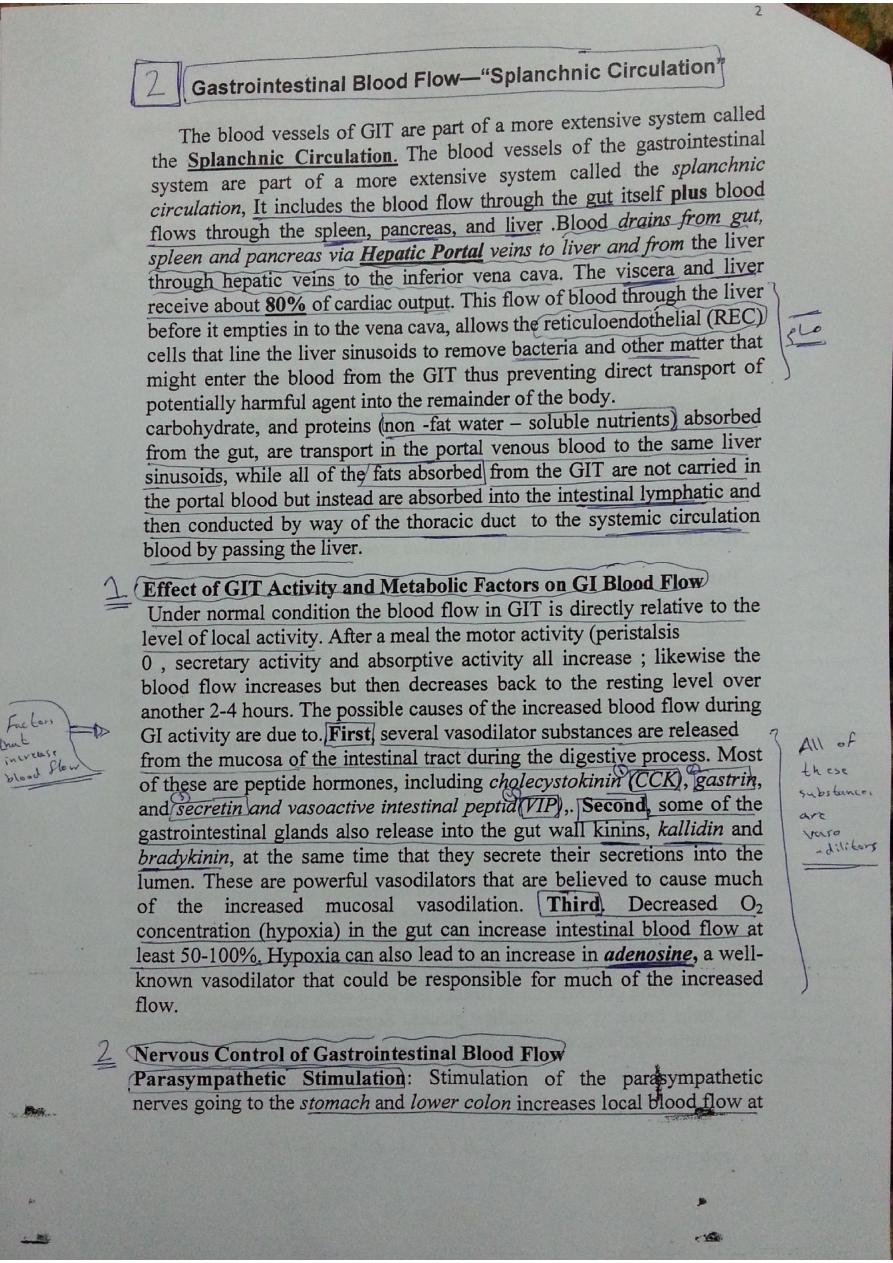 2
2 Gastrointestinal Blood Flow—“Splanchnic Circulation”
The blood vessels of GIT are part of a more extensive system called
the Splanchnic Circulation. The blood vessels of the gastrointestinal
system are part of a more extensive system called the splanchnic
circulation, It includes the blood flow through the gut itself plus blood
flows through the spleen, pancreas, and liver .Blood drains from gut,
spleen and pancreas via Hepatic Portal veins to liver and from the liver
through hepatic veins to the inferior vena cava. The viscera and liver
receive about 80% of cardiac output. This flow of blood through the liver
before it empties in to the vena cava, allows the reticuloendothelial (REC)
cells that line the liver sinusoids to remove bacteria and other matter that
might enter the blood from the GIT thus preventing direct transport of
potentially harmful agent into the remainder of the body.
carbohydrate, and proteins (non -fat water – soluble nutrients) absorbed
from the gut, are transport in the portal venous blood to the same liver
sinusoids, while all of the fats absorbed from the GIT are not carried in
the portal blood but instead are absorbed into the intestinal lymphatic and
then conducted by way of the thoracic duct to the systemic circulation
blood by passing the liver.
1 Effect of GIT Activity and Metabolic Factors on GI Blood Flow
Under normal condition the blood flow in GIT is directly relative to the
level of local activity. After a meal the motor activity (peristalsis
0 , secretary activity and absorptive activity all increase ; likewise the
blood flow increases but then decreases back to the resting level over
another 2-4 hours. The possible causes of the increased blood flow during
GI activity are due to. First, several vasodilator substances are released
from the mucosa of the intestinal tract during the digestive process. Most
of these are peptide hormones, including cholecystokinin (CCK), gastrin,
and secretin and vasoactive intestinal peptid (VIP),. Second, some of the
gastrointestinal glands also release into the gut wall kinins, kallidin and
bradykinin, at the same time that they secrete their secretions into the
lumen. These are powerful vasodilators that are believed to cause much
of the increased mucosal vasodilation. Third, Decreased O₂
concentration (hypoxia) in the gut can increase intestinal blood flow at
least 50-100%. Hypoxia can also lead to an increase in adenosine, a well-
known vasodilator that could be responsible for much of the increased
flow.
Factors
that
increase
blood flow
All of
these
substances
are
vaso
-dilitors
2 Nervous Control of Gastrointestinal Blood Flow
Parasympathetic Stimulation: Stimulation of the parasympathetic
nerves going to the stomach and lower colon increases local blood flow at